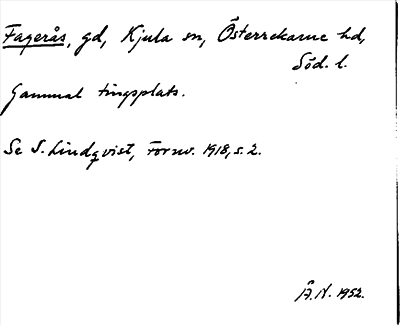 Fagerås, gd, Kjula sn, Österrekarne hd,
Söd. l.
Gammal tingsplats.
Se S. Lindqvist, Fornv. 1918, s. 2.
Å.N. 1952.